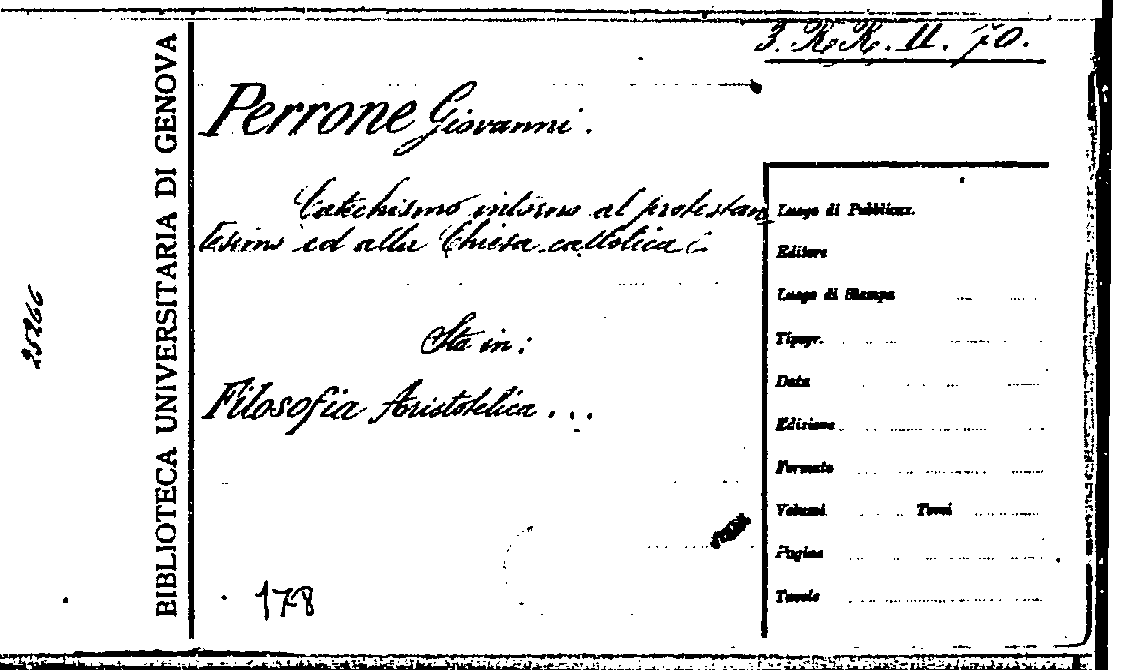 3. R.R. II. 70.
Perrone Giovanni.
Catechismo intorno al protestan
tesimo ed alla Chiesa cattolica:
Sta in:
Filosofia Aristotelica...
178
BIBLIOTECA UNIVERSITARIA DI GENOVA
25266
Luogo di Pubblicaz.
Editore
Luogo di Stampa
Tipogr.
Data
Edizione
Formato
Volumi Tomi
Pagine
Tavole